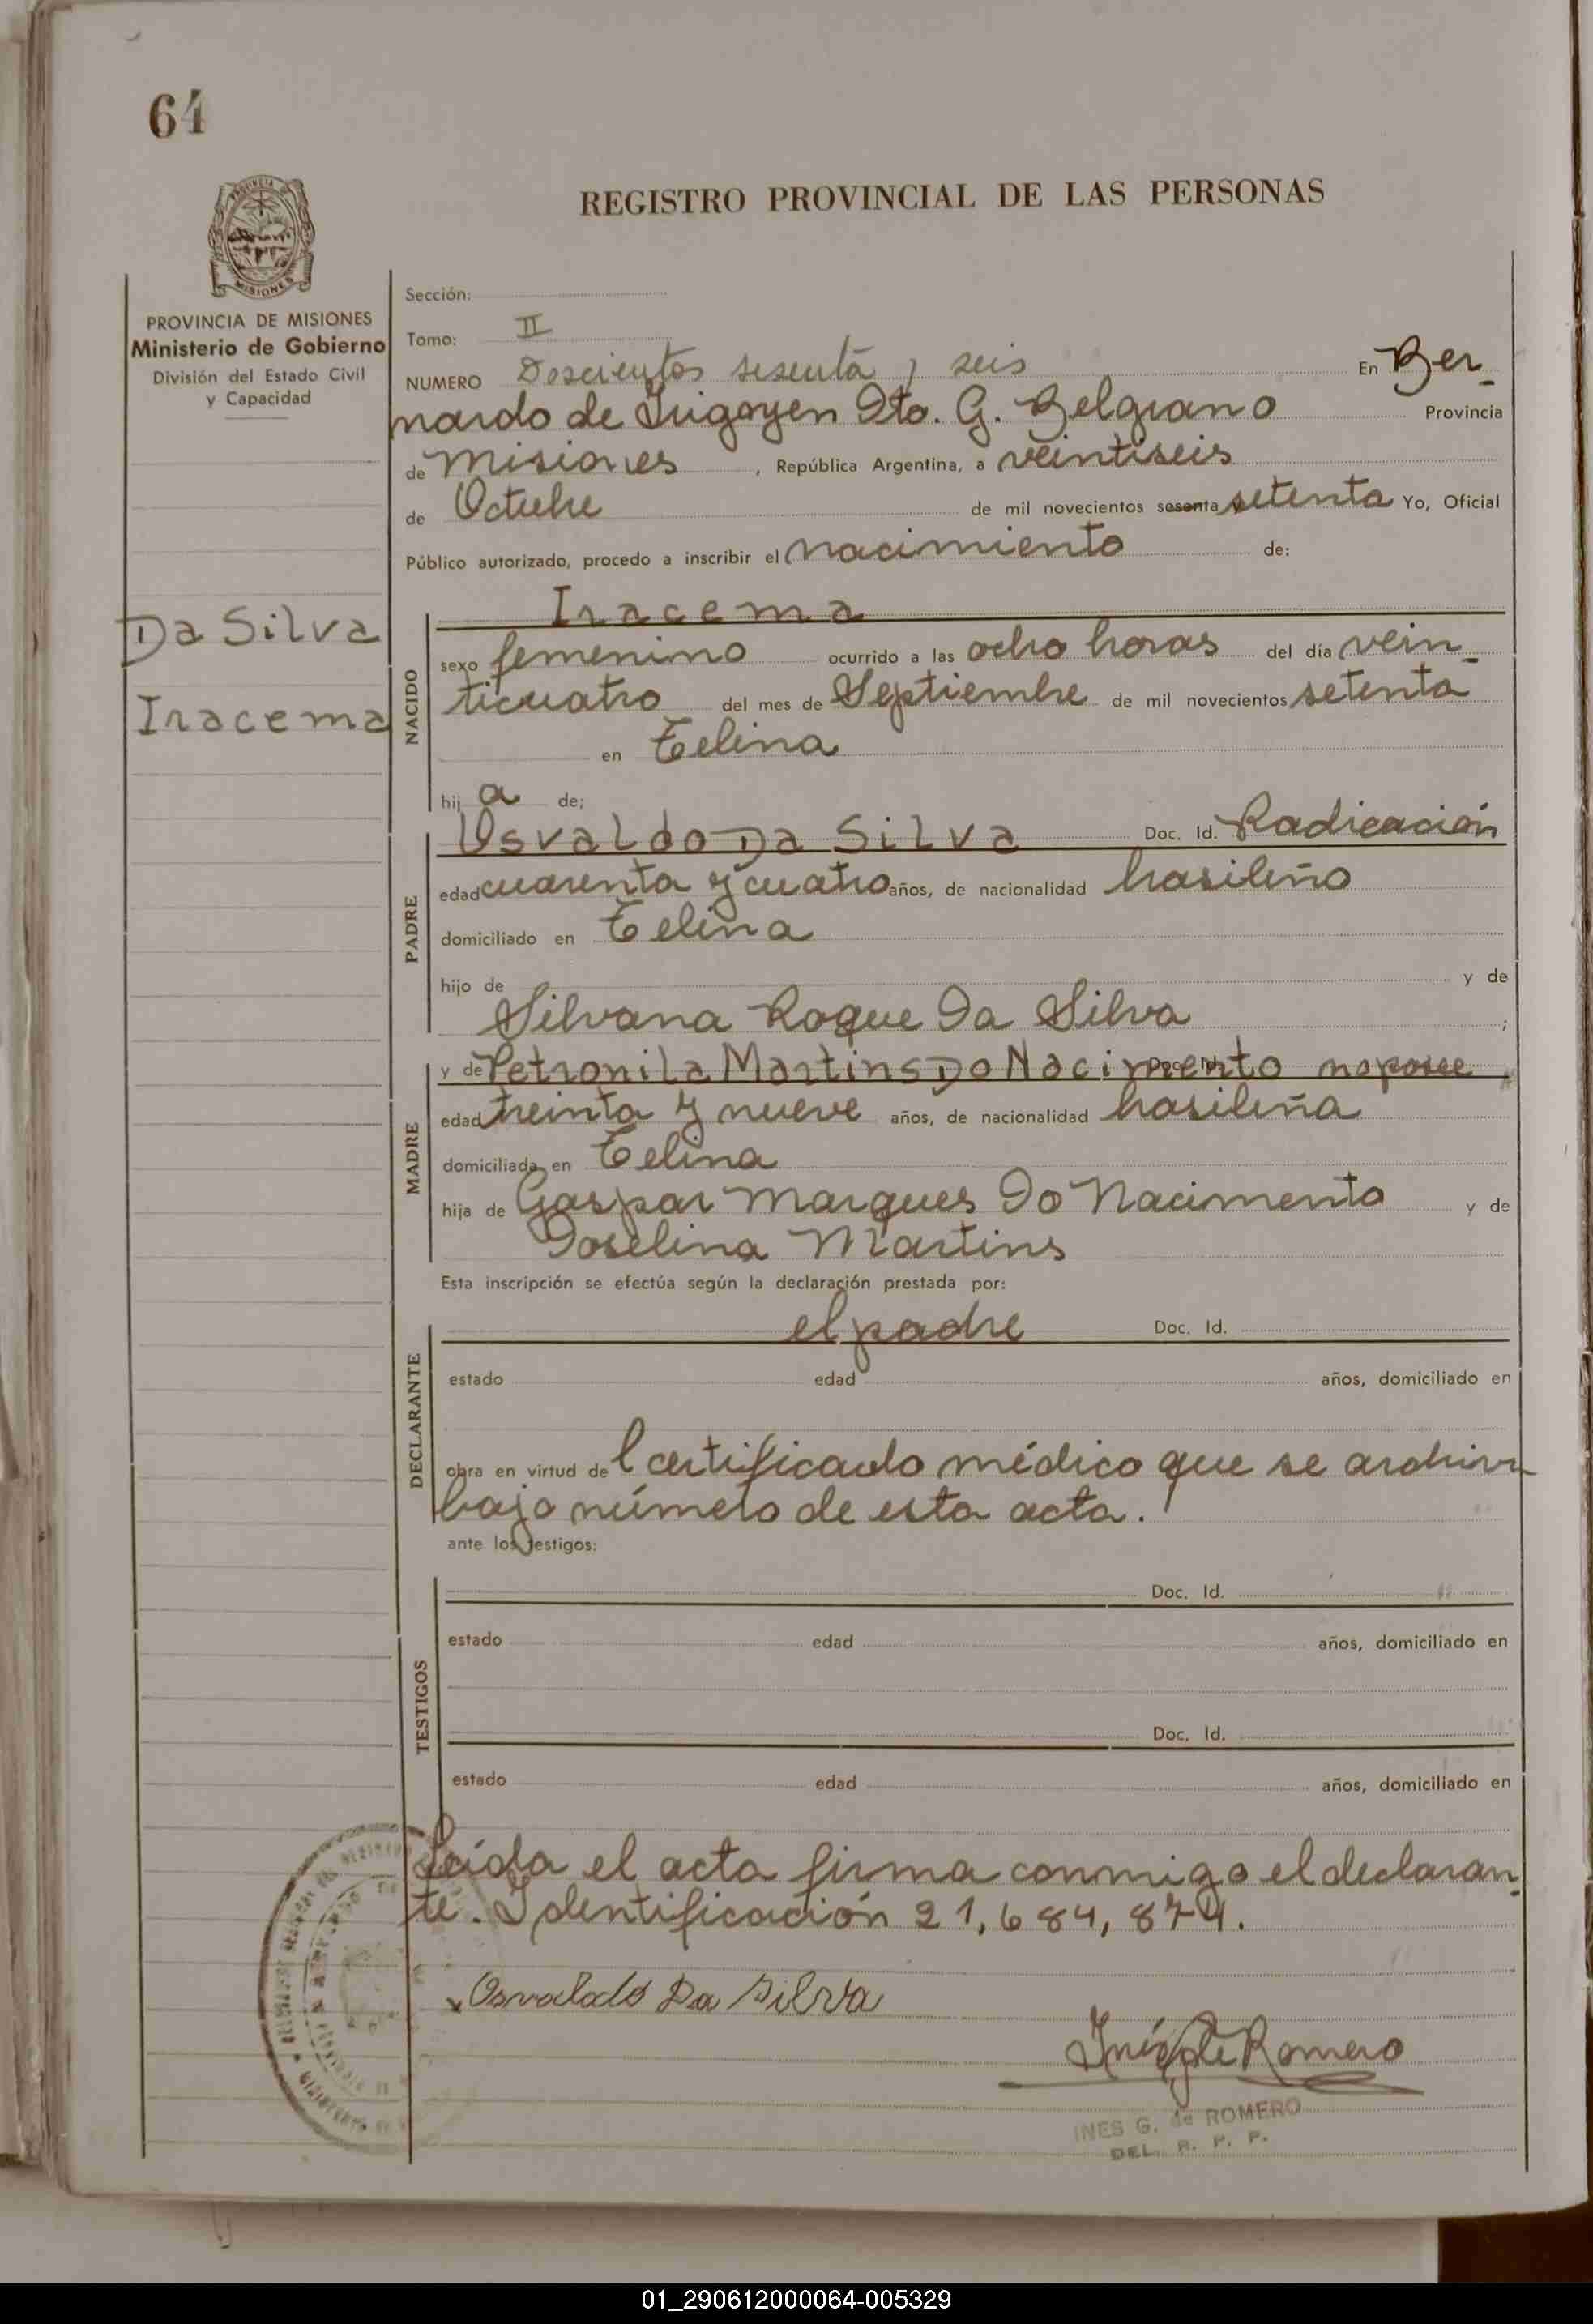 64
REGISTRO PROVINCIAL DE LAS PERSONAS
PROVINCIA DE MISIONES
Ministerio de Gobierno
División del Estado Civil
y Capacidad
Sección:
Tomo: II
NUMERO Doscientos sesenta y seis En Ber-
nardo de Irigoyen Dto. G. Belgrano Provincia
de Misiones, República Argentina, a veintiseis
de Octubre de mil novecientos sesenta setenta Yo, Oficial
Público autorizado, procedo a inscribir el nacimiento de:
Da Silva
Iracema
NACIDO
Iracema
sexo femenino ocurrido a las ocho horas del día vein-
ticuatro del mes de Septiembre de mil novecientos setenta
en Celina
hij a de;
PADRE
Osvaldo Da Silva Doc. Id. Radicación
edad cuarenta y cuatro años, de nacionalidad brasileño
domiciliado en Celina
hijo de y de
Silvana Roque Da Silva ;
MADRE
y de Petronila Martins Do Nacimento Doc. Id. no posee
edad treinta y nueve años, de nacionalidad brasileña
domiciliada en Celina
hija de Gaspar Marques Do Nacimento y de
Joselina Martins
Esta inscripción se efectúa según la declaración prestada por:
DECLARANTE
el padre Doc. Id.
estado edad años, domiciliado en
obra en virtud del certificado médico que se archiva
bajo número de esta acta.
ante los testigos:
TESTIGOS
Doc. Id.
estado edad años, domiciliado en
Doc. Id.
estado edad años, domiciliado en
Leída el acta firma conmigo el declaran-
te. Identificación 21,684,874.
Osvaldo Da Silva
Inés G. de Romero
INES G. de ROMERO
DEL. R. P. P.
01_290612000064-005329